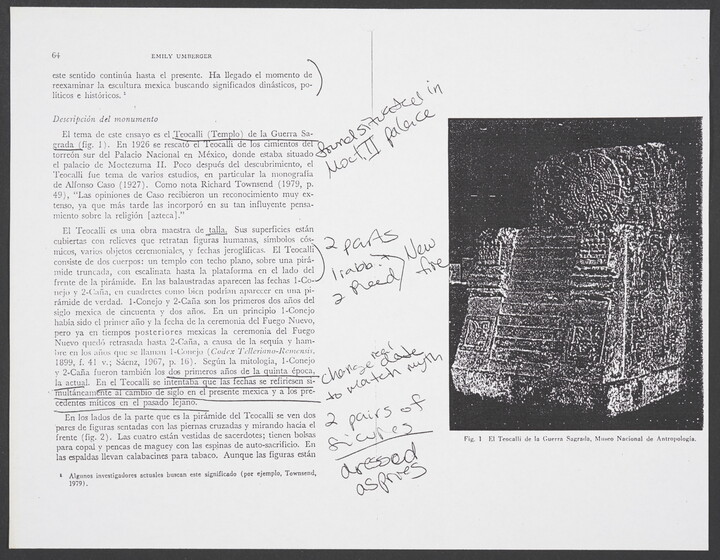 64
EMILY UMBERGER
este sentido continúa hasta el presente. Ha llegado el momento de
reexaminar la escultura mexica buscando significados dinásticos, po-
líticos e históricos. ¹
Descripción del monumento
El tema de este ensayo es el Teocalli (Templo) de la Guerra Sa-
grada (fig. 1). En 1926 se rescató el Teocalli de los cimientos del
torreón sur del Palacio Nacional en México, donde estaba situado
el palacio de Moctezuma II. Poco después del descubrimiento, el
Teocalli fue tema de varios estudios, en particular la monografía
de Alfonso Caso (1927). Como nota Richard Townsend (1979, p.
49), "Las opiniones de Caso recibieron un reconocimiento muy ex-
tenso, ya que más tarde las incorporó en su tan influyente pensa-
miento sobre la religión [azteca]."
El Teocalli es una obra maestra de talla. Sus superficies están
cubiertas con relieves que retratan figuras humanas, símbolos cós-
micos, varios objetos ceremoniales, y fechas jeroglíficas. El Teocalli
consiste de dos cuerpos: un templo con techo plano, sobre una pirá-
mide truncada, con escalinata hasta la plataforma en el lado del
frente de la pirámide. En las balaustradas aparecen las fechas 1-Co-
nejo y 2-Caña, en cuadretes como bien podrían aparecer en una pi-
rámide de verdad. 1-Conejo y 2-Caña son los primeros dos años del
siglo mexica de cincuenta y dos años. En un principio 1-Conejo
había sido el primer año y la fecha de la ceremonia del Fuego Nuevo,
pero ya en tiempos posteriores mexicas la ceremonia del Fuego
Nuevo quedó retrasada hasta 2-Caña, a causa de la sequía y ham-
bre en los años que se llaman 1-Conejo (Codex Telleriano-Remensis,
1899, f. 41 v.; Sáenz, 1967, p. 16). Según la mitología, 1-Conejo
y 2-Caña fueron también los dos primeros años de la quinta época,
la actual. En el Teocalli se intentaba que las fechas se refiriesen si-
multáneamente al cambio de siglo en el presente mexica y a los pre-
cedentes míticos en el pasado lejano.
En los lados de la parte que es la pirámide del Teocalli se ven dos
pares de figuras sentadas con las piernas cruzadas y mirando hacia el
frente (fig. 2). Las cuatro están vestidas de sacerdotes; tienen bolsas
para copal y pencas de maguey con las espinas de auto-sacrificio. En
las espaldas llevan calabacines para tabaco. Aunque las figuras están
¹ Algunos investigadores actuales buscan este significado (por ejemplo, Townsend,
1979).
found situated in
Moct II palace
2 parts
1 rabb.
2 reed
New
fire
change real date
to match myth
2 pairs of
figures
dressed
as pries
Fig. 1 El Teocalli de la Guerra Sagrada, Museo Nacional de Antropología.